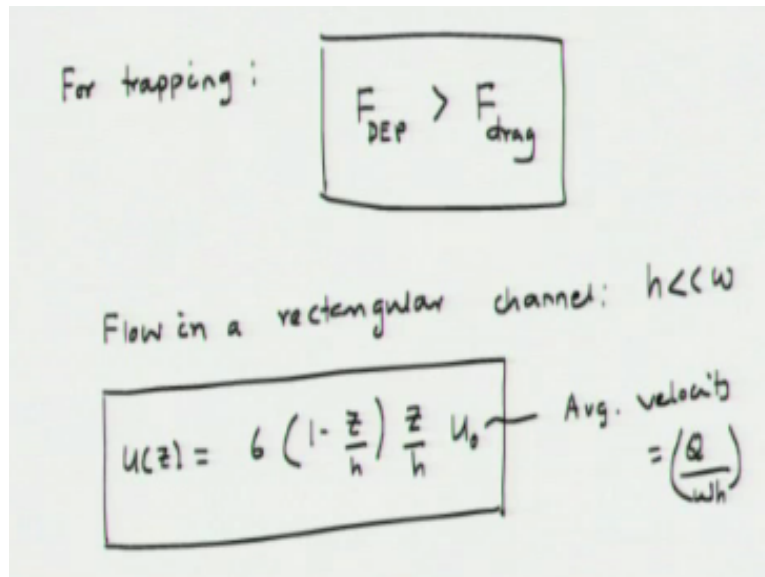 For trapping :
F_DEP > F_drag
Flow in a rectangular channel: h<<w
u(z) = 6 (1 - z/h) z/h u₀ — Avg. velocity
= (Q/wh)